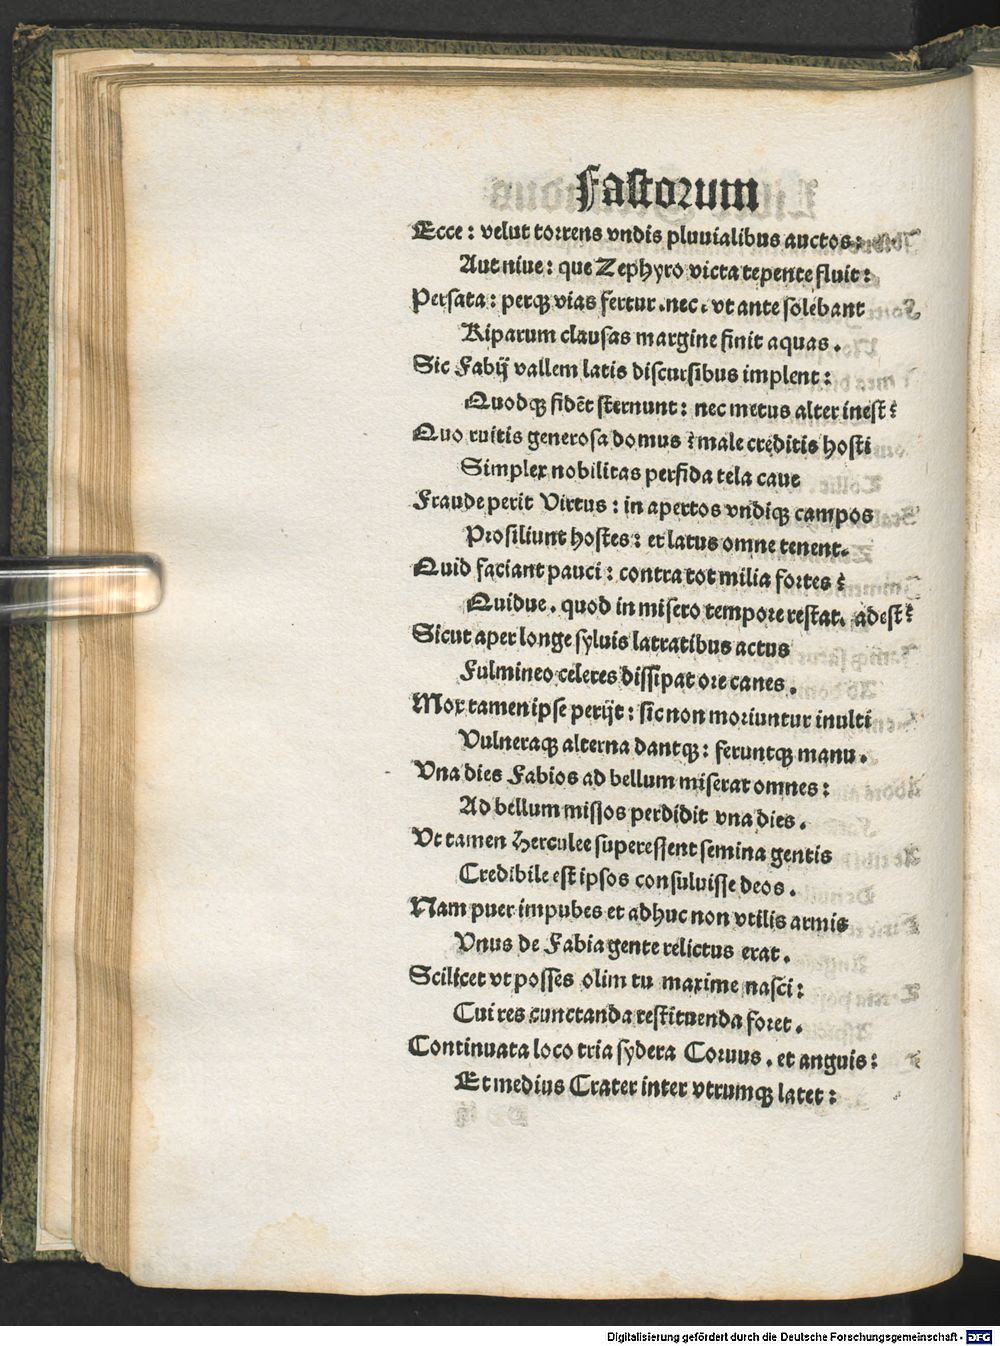 Fastorum
Ecce : velut torrens vndis pluuialibus auctos :
Aut niue : que Zephyro victa tepente fluit :
Persata : perq̃ vias fertur . nec . vt ante solebant
Riparum clausas margine finit aquas .
Sic Fabij vallem latis discursibus implent :
Quodq̃ fidēt sternunt : nec metus alter inest ?
Quo ruitis generosa domus ? male creditis hosti
Simplex nobilitas perfida tela caue
Fraude perit Virtus : in apertos vndiq̃ campos
Prosiliunt hostes : et latus omne tenent.
Quid faciant pauci : contra tot milia fortes ?
Quidue . quod in misero tempore restat. adest ?
Sicut aper longe syluis latratibus actus
Fulmineo celeres dissipat ore canes .
Mox tamen ipse perijt : sic non moriuntur inulti
Vulneraq̃ alterna dantq̃ : feruntq̃ manu .
Vna dies Fabios ad bellum miserat omnes :
Ad bellum missos perdidit vna dies .
Vt tamen Herculee superessent semina gentis
Credibile est ipsos consuluisse deos .
Nam puer impubes et adhuc non vtilis armis
Vnus de Fabia gente relictus erat .
Scilicet vt posses olim tu maxime nasci :
Cui res cunctanda restituenda foret .
Continuata loco tria sydera Coruus . et anguis :
Et medius Crater inter vtrumq̃ latet :
Digitalisierung gefördert durch die Deutsche Forschungsgemeinschaft - DFG